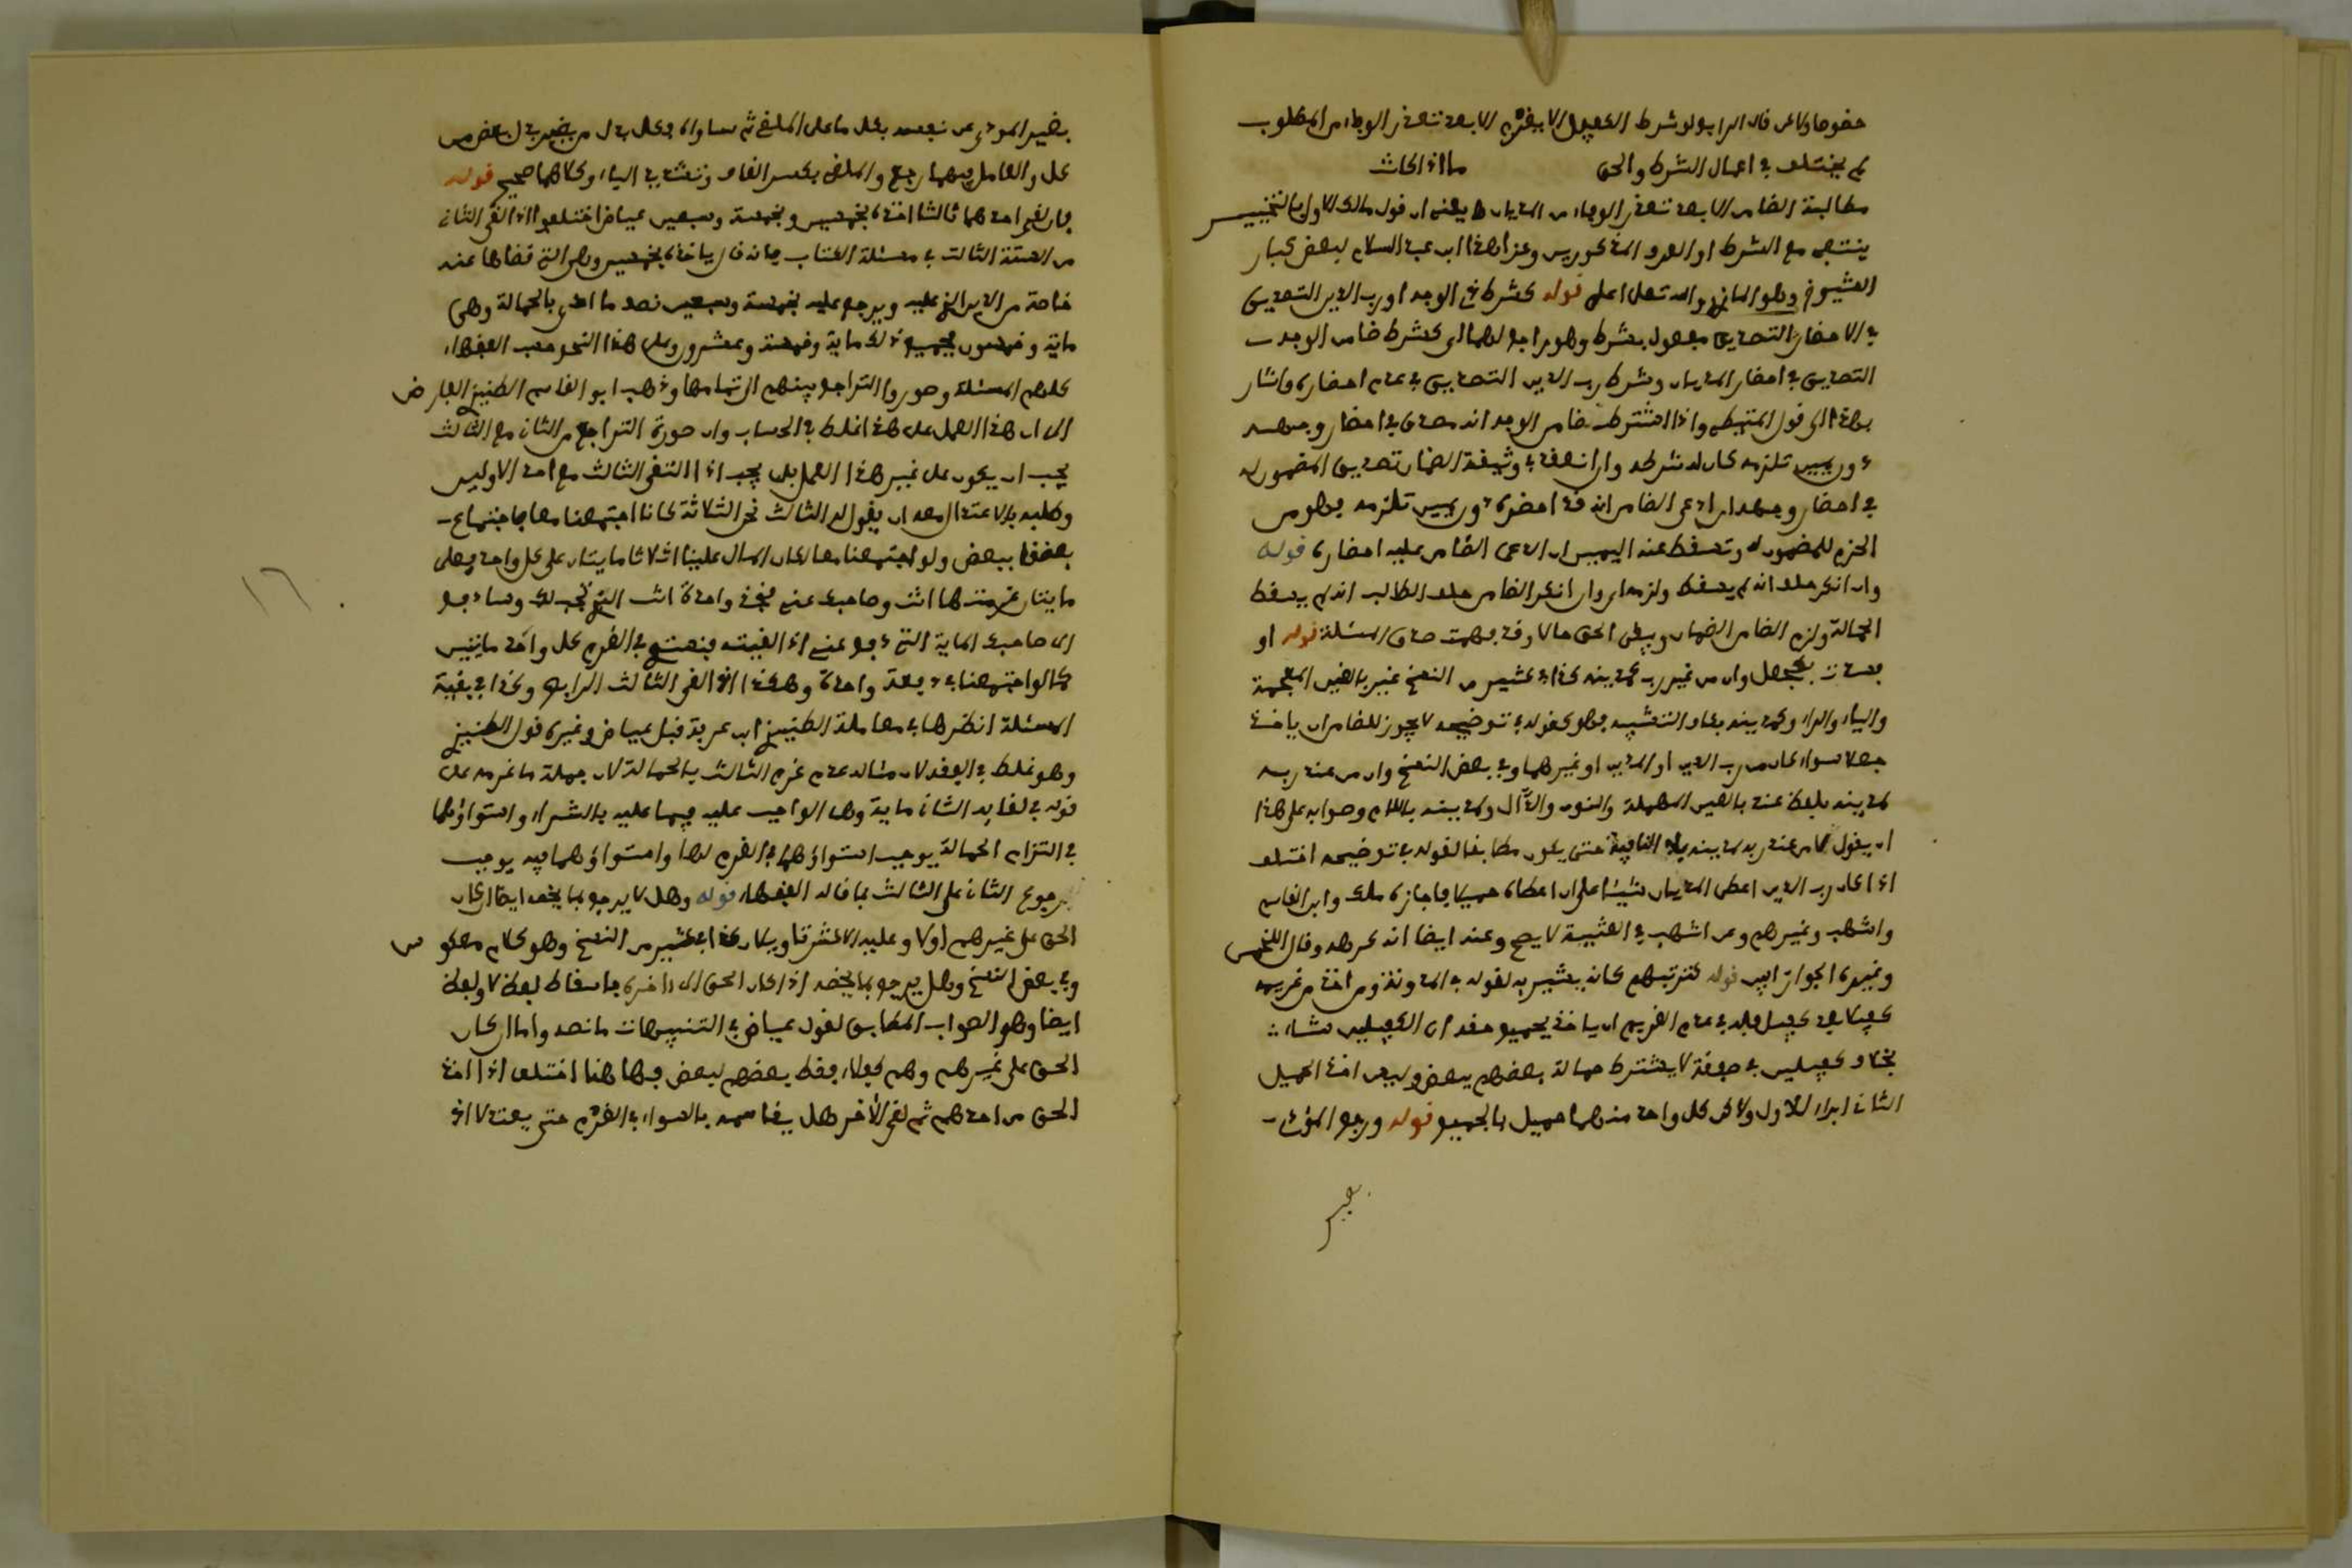 خصوصا ولاكن قال ابن رشد لو شرط الكفيل الا يغرم الا بعد تعذر الوفاء من المطلوب
لم يختلف في اعمال الشرط والحق ما اذا كانت
مطالبة الضامن الا بعد تعذر الوفاء من المديان يعني ان قول مالك الاول بالتخيير
ينتفي مع الشرط او العرف المذكورين وعزا هذا ابن عبد السلام لبعض كبار
الشيوخ وهو المازري واستدل على قوله كشرط ذي الوجه او رب الدين التصديق
في الاحضار التصديق مفعول بشرط وهو راجع لهما اي كشرط ضامن الوجه
التصديق في احضار المديان وشرط رب الدين التصديق في عدم احضاره واشار
بهذا الى قول المتيطي واذا اشترط ضامن الوجه انه مصدق في احضار وجهه
دون يمين تلزمه كان له شرطه وان انعقد في وثيقة الضمان تصديق المضمون له
في احضار وجهه ان ادعى الضامن انه قد احضره دون يمين تلزمه فهو من
الحزم للمضمون له وتسقط عنه اليمين ان ادعى الضامن عليه احضاره قوله
وان انكر حلف انه لم يسقط ولزمه اي وان انكر الضامن حلف الطالب انه لم يسقط
الحمالة ولزم الضامن الضمان وبقى الحق حالا وقد فهمت صدق المسئلة قوله او
فسدت بكجعل وان من غير رب كمدينه كذا في كثير من النسخ غير بالغين المعجمة
والياء والراء وكمدينه بكاف التشبيه فهو كقوله في توضيحه لا يجوز للضامن ان ياخذ
جعلا سواء كان من رب الدين او المدين او غيرهما وفي بعض النسخ وان من عند ربه
لمدينه بلفظ عند بالعين المهملة والنون والدال ولمدينه باللام وصوابه على هذا
ان يقول لا من عند ربه لمدينه بلا النافية حتى يكون مطابقا لقوله في توضيحه اختلف
اذا كان رب الدين اعطى المديان شيئا على ان اعطاه حميلا فاجازه ملك وابن القاسم
واشهب وغيرهم وعن اشهب في العتبية لا يصح وعنه ايضا انه كرهه وقال اللخمي
وغيره الجواز ابين قوله كترتبهم كانه يشير به لقوله في المدونة ومن اخذ من غريمه
كفيلا بعد كفيل فله في عدم الغريم ان ياخذ بجميع حقه اي الكفيلين شاء
بخلاف كفيلين في صفقة لا يشترط حمالة بعضهم ببعض وليس اخذ الحميل
الثاني ابراء للاول ولاكن كل واحد منهما حميل بالجميع قوله ورجع المؤدي
بغير
بغير المؤدى عن نفسه بكل ما على الملقي ثم ساواه
كل والعامل فيهما رجع والملقي بكسر القاف وتشديد الياء وكلاهما صحيح قوله
فان لقي احدهما ثالثا اخذه بخمسين وبخمسة وسبعين عياض اختلفوا اذا لقي الثاني
من الستة الثالث في مسئلة الكتاب فانه قال ياخذه بخمسين وهي التي قضاها عنه
خاصة من الدين الذي عليه ويرجع عليه بخمسة وسبعين نصف ما ادى بالحمالة وهي
ماية وخمسون فجميع ذلك ماية وخمسة وعشرون وعلى هذا النحو حسب الفقهاء
كلهم المسئلة وصوروا التراجع بينهم الى تمامها وذهب ابو القاسم الطنيزي الفارض
الى ان هذا العمل على هذا غلط في الحساب وان صورة التراجع من الثاني مع الثالث
يجب ان يكون على غير هذا العمل بل يجب اذا التقى الثالث مع احد الاولين
وطلبه بالاعتدال معه ان يقول له الثالث نحن الثلاثة كانا اجتمعنا معا فاجتماع
بعضنا ببعض ولو اجتمعنا معا لكان المال علينا اثلاثا مايتان على كل واحد فعلي
مايتان غرمتها انت وصاحبك عني فخذ واحدة انت التي تجب لك وسادفع
الى صاحبك الماية التي دفع عني اذا لقيته فنستوي في الغرم كل واحد مايتين
كما لو اجتمعنا في دفعة واحدة وهكذا اذا لقي الثالث الرابع وكذا في بقية
المسئلة انظرها في معاملة الطنيزي ابن عرفة قبل عياض وغيره قول الطنيزي
وهو غلط في الفقه لان مثاله عدم غرم الثالث بالحمالة لان جملة ما غرمه على
قوله في لقايه الثاني ماية وهي الواجب عليه فيما عليه بالشراء واستواؤهما
في التزام الحمالة يوجب استواؤهما في الغرم لها واستواؤهما فيه يوجب
رجوع الثاني على الثالث بما قاله الفقهاء قوله وهل لا يرجع بما يخصه ايضا ان كان
الحق على غيرهم اولا وعليه الاكثر تاويلان كذا في كثير من النسخ وهو كلام معكوس
وفي بعض النسخ وهل يرجع بما يخصه اذا كان الحق الى اخره باسقاط لفظ لا ولفظ
ايضا وهو الصواب المطابق لقول عياض في التنبيهات ما نصه واما ان كان
الحق على غيرهم وهم كفلاء فقط بعضهم لبعض فهاهنا اختلف اذا اخذ
الحق من احدهم ثم لقي الاخر هل يقاسمه بالسواء في الغرم حتى يعتدلا اذ
١٦